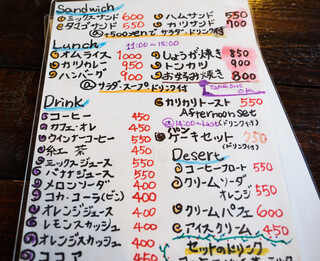 Sandwich
ミックスサンド 600
ハムサンド 550
タマゴサンド 550
カツサンド 700
@+500yenで サラダ・ドリンク付
Lunch 11:00~15:00
オムライス 1000
しょうが焼き 850
カツカレー 950
トンカツ 900
ハンバーグ 900
お好み焼き 800
@サラダ・スープ・ドリンク付
Take out OK
Drink
カリカリトースト 550
Afternoon set
コーヒー 450
@14:00~Last(ドリンク付)
カフェ・オレ 450
ケーキセット 750
ウインナーコーヒー 550
(ドリンク付)
紅茶 450
Desert
ミックスジュース 550
コーヒーフロート 550
バナナジュース 550
クリームソーダ
メロンソーダ 400
オレンジ 550
コカ・コーラ(ビン) 400
クリームパフェ 600
オレンジジュース 400
アイスクリーム 450
レモンスカッシュ 400
オレンジスカッシュ 400
セットのドリンク
ココア